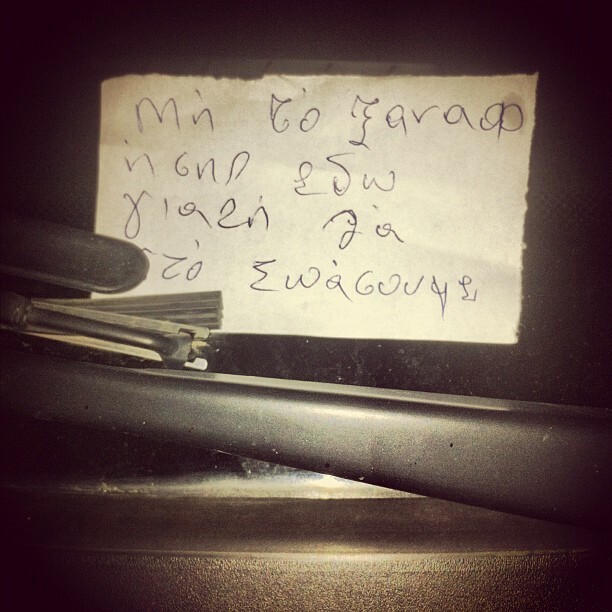 Μή τό ξαναφ
ήσης εδω
γιατή θά
τό σπάσουμε